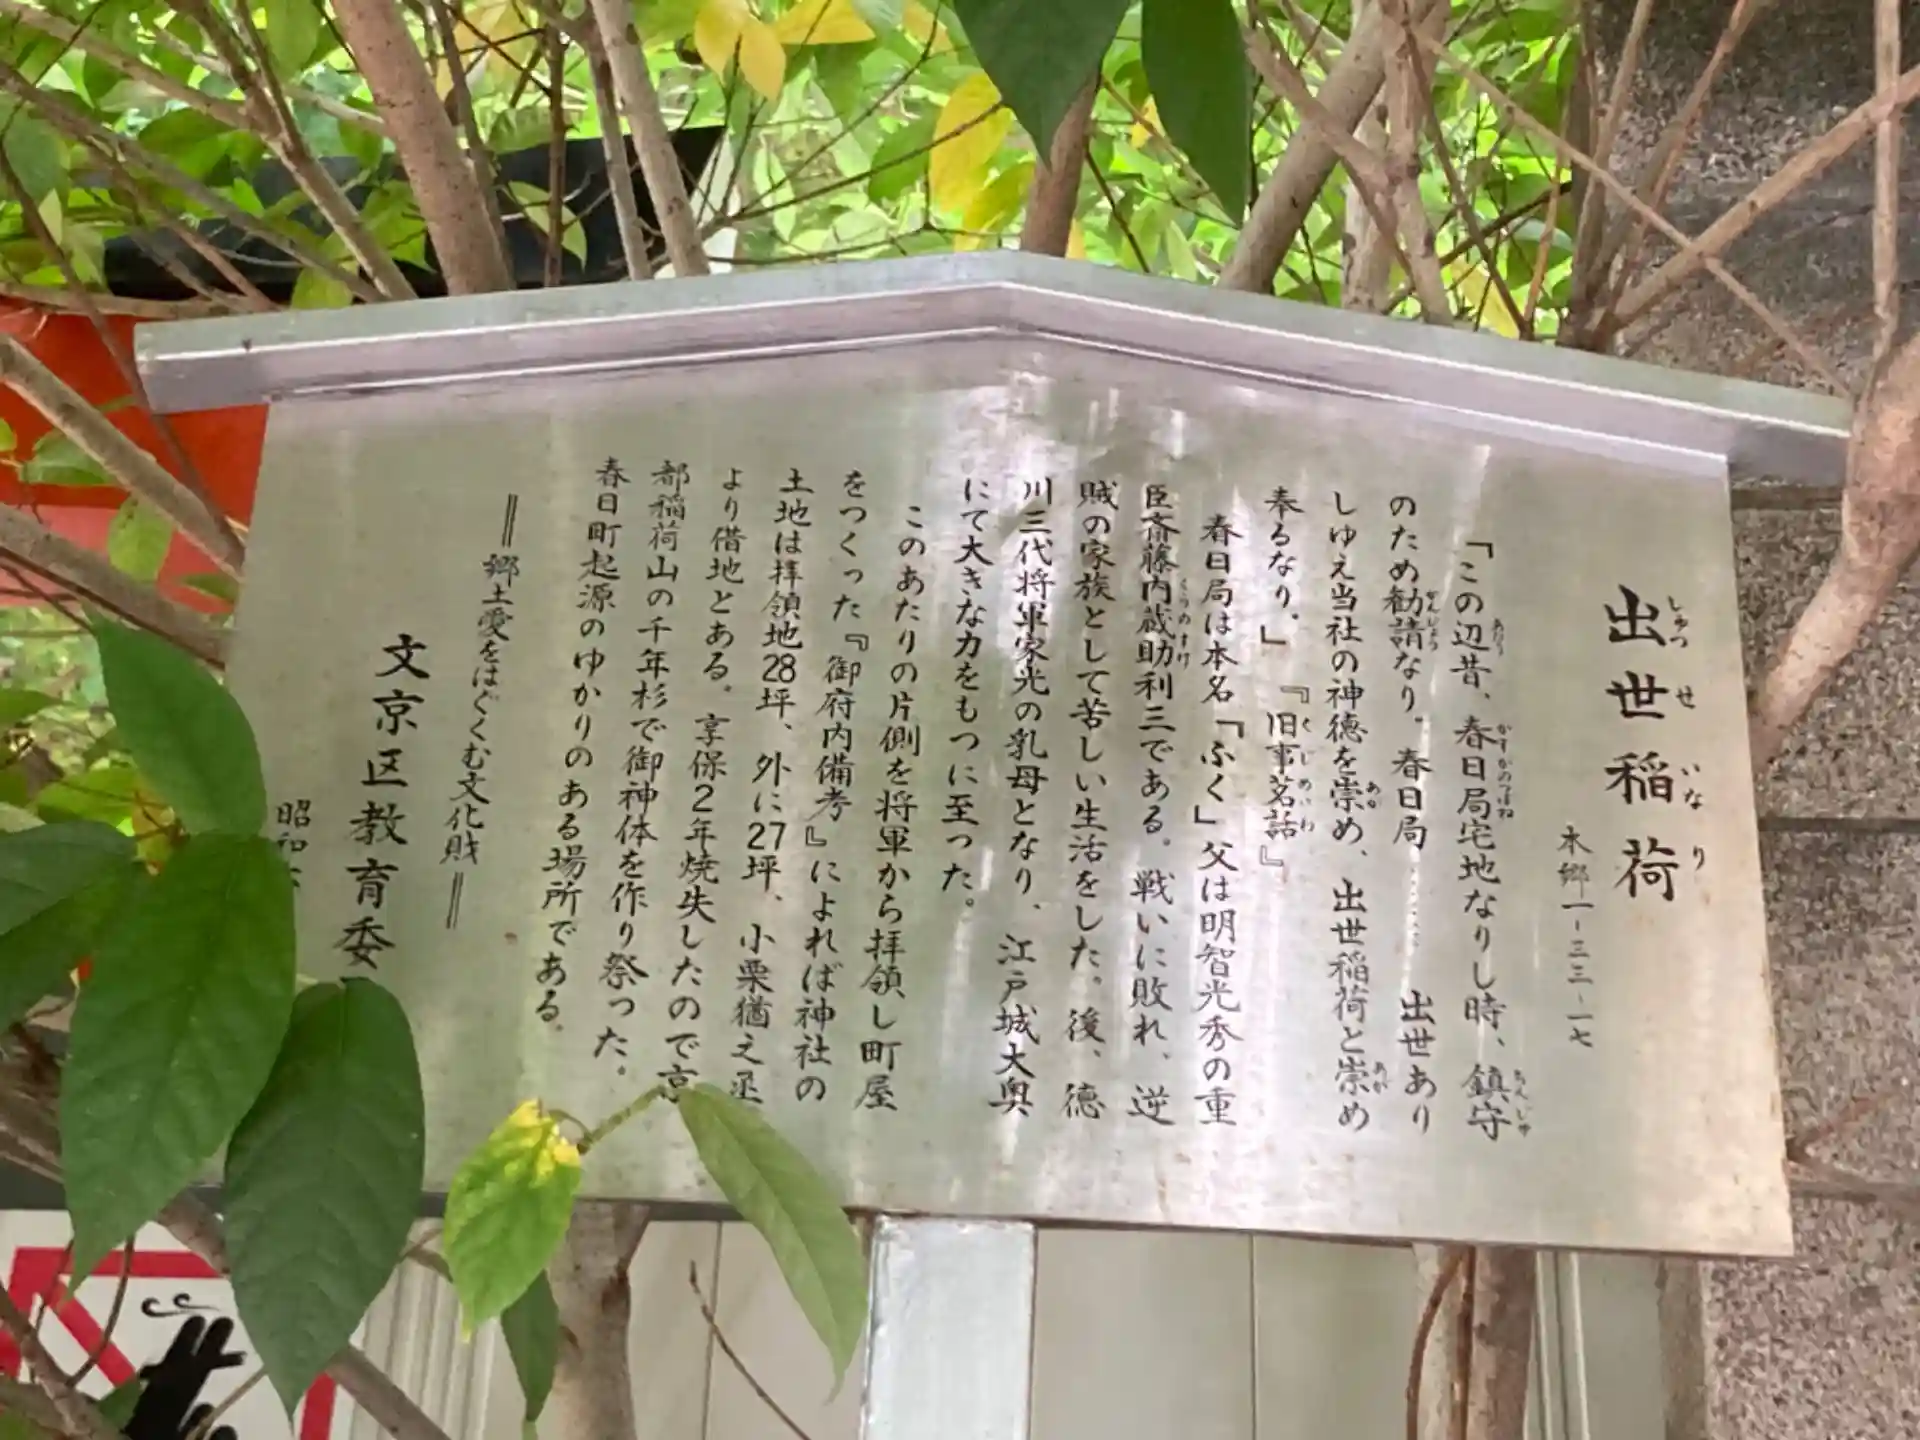 出世稲荷
しゅつせいなり
本郷一-三三-一七
「この辺昔、春日局宅地なりし時、鎮守
のため勧請なり。春日局……出世あり
しゆえ当社の神徳を崇め、出世稲荷と崇め
奉るなり。」『旧事茗話』
春日局は本名「ふく」父は明智光秀の重
臣斎藤内蔵助利三である。戦いに敗れ、逆
賊の家族として苦しい生活をした。後、徳
川三代将軍家光の乳母となり、江戸城大奥
にて大きな力をもつに至った。
このあたりの片側を将軍から拝領し町屋
をつくった『御府内備考』によれば神社の
土地は拝領地28坪、外に27坪、小栗猶之丞
より借地とある。享保2年焼失したので京
都稲荷山の千年杉で御神体を作り祭った。
春日町起源のゆかりのある場所である。
═郷土愛をはぐくむ文化財═
文京区教育委
昭和